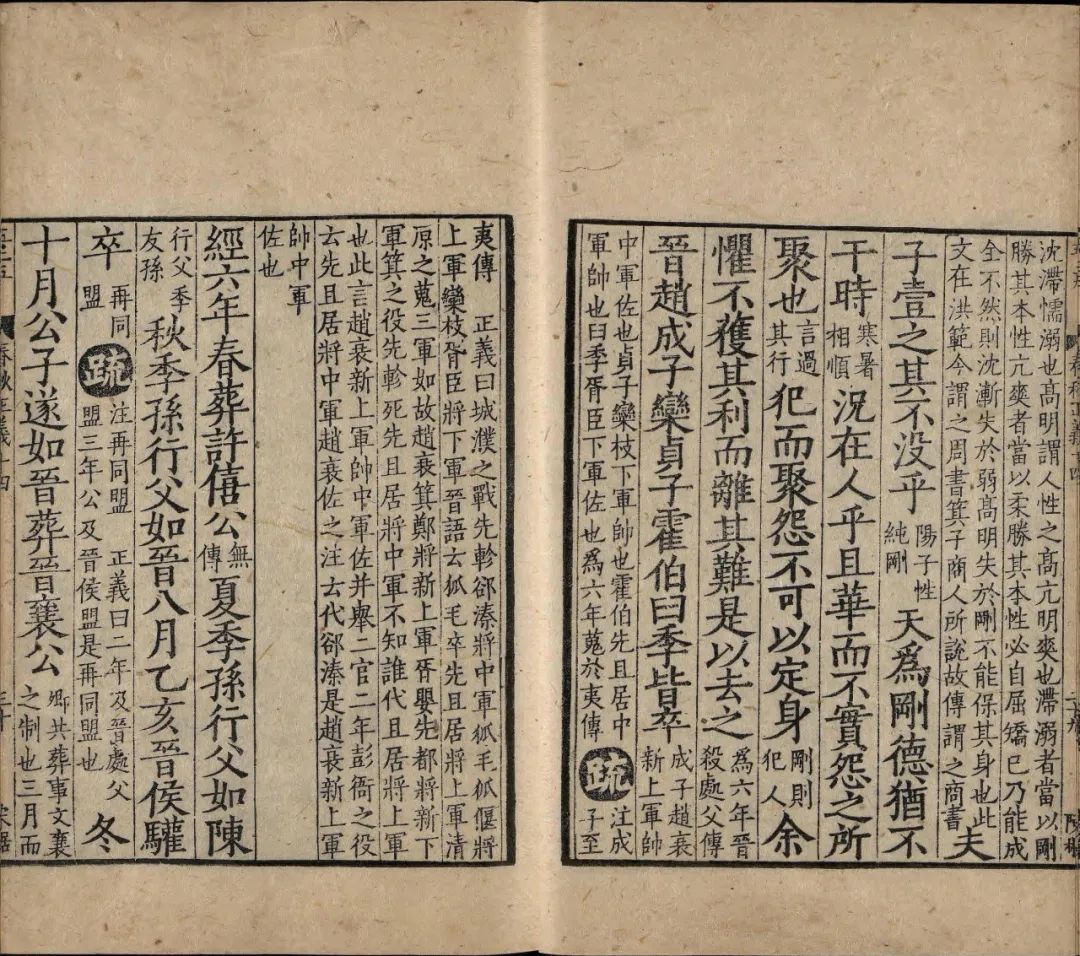 沈滯懦溺也高明謂人性之高亢明爽也滯溺者當以剛
勝其本性亢爽者當以柔勝其本性必自屈矯已乃能成
全不然則沈漸失於弱高明失於剛不能保其身也此
文在洪範今謂之周書箕子商人所說故傳謂之商書
夫
子壹之其不没乎
陽子性
純剛
天爲剛德猶不
干時
寒暑
相順
況在人乎且華而不實怨之所
聚也
言過
其行
犯而聚怨不可以定身
剛則
犯人
余
懼不獲其利而離其難是以去之
爲六年晉
殺處父傳
晉趙成子欒貞子霍伯臼季皆卒
成子趙衰
新上軍帥
中軍佐也貞子欒枝下軍帥也霍伯先且居中
軍帥也臼季胥臣下軍佐也爲六年蒐於夷傳
疏
注成
子至
夷傳 正義曰城濮之戰先軫郤溱將中軍狐毛狐偃將
上軍欒枝胥臣將下軍晉語云狐毛卒先且居將上軍清
原之蒐三軍如故趙衰箕鄭將新上軍胥嬰先都將新下
軍箕之役先軫死先且居將中軍不知誰代且居將上軍
也此言趙衰新上軍帥中軍佐并舉二官二年彭衙之役
云先且居將中軍趙衰佐之注云代郤溱是趙衰新上軍
帥中軍
佐也
經六年春葬許僖公
無
傳
夏季孫行父如陳
行父季
友孫
秋季孫行父如晉八月乙亥晉侯驩
卒
再同
盟
疏
注再同盟 正義曰二年及晉處父
盟三年公及晉侯盟是再同盟也
冬
十月公子遂如晉葬晉襄公
卿共葬事文襄
之制也三月而